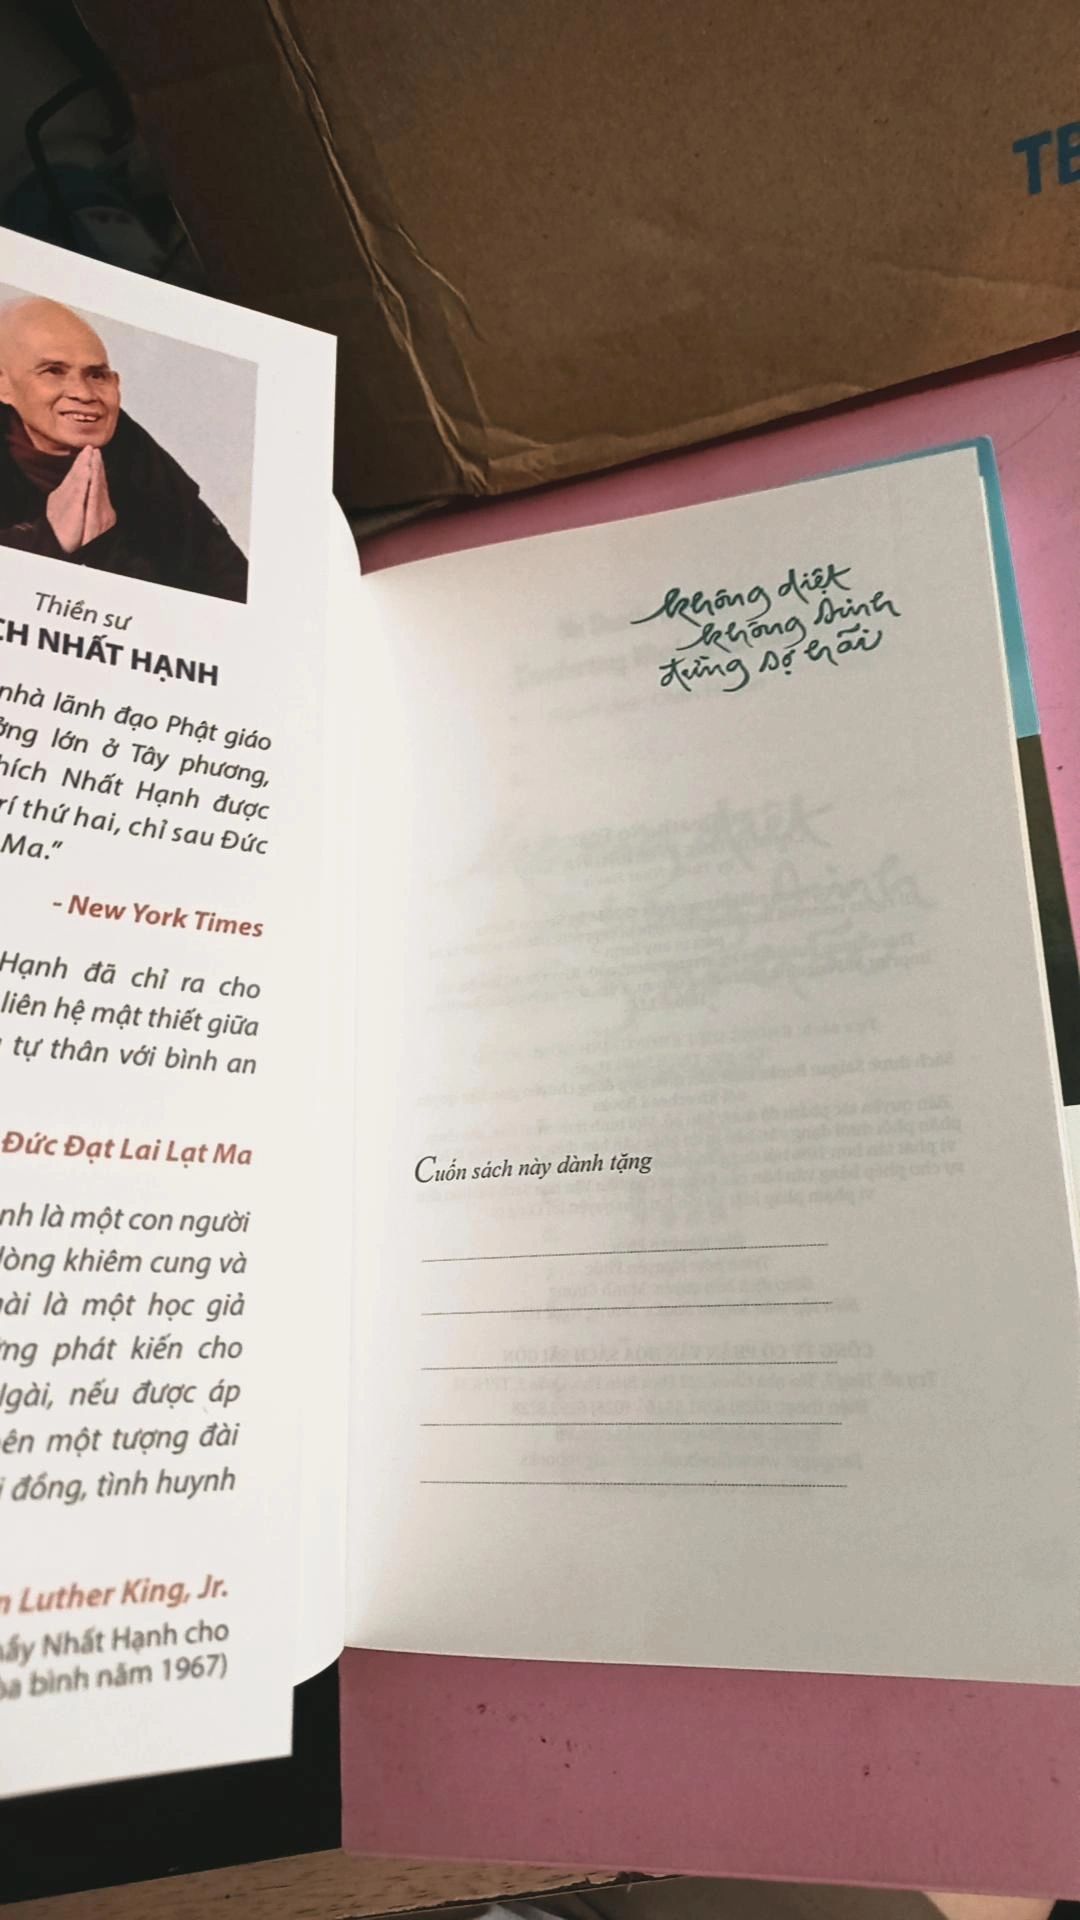 TE
Thiền sư
CH NHẤT HẠNH
nhà lãnh đạo Phật giáo
ởng lớn ở Tây phương,
hích Nhất Hạnh được
rí thứ hai, chỉ sau Đức
Ma.”
- New York Times
Hạnh đã chỉ ra cho
liên hệ mật thiết giữa
tự thân với bình an
Đức Đạt Lai Lạt Ma
nh là một con người
lòng khiêm cung và
ài là một học giả
ng phát kiến cho
gài, nếu được áp
ên một tượng đài
i đồng, tình huynh
n Luther King, Jr.
ầy Nhất Hạnh cho
òa bình năm 1967)
không diệt
không sinh
đừng sợ hãi
Cuốn sách này dành tặng